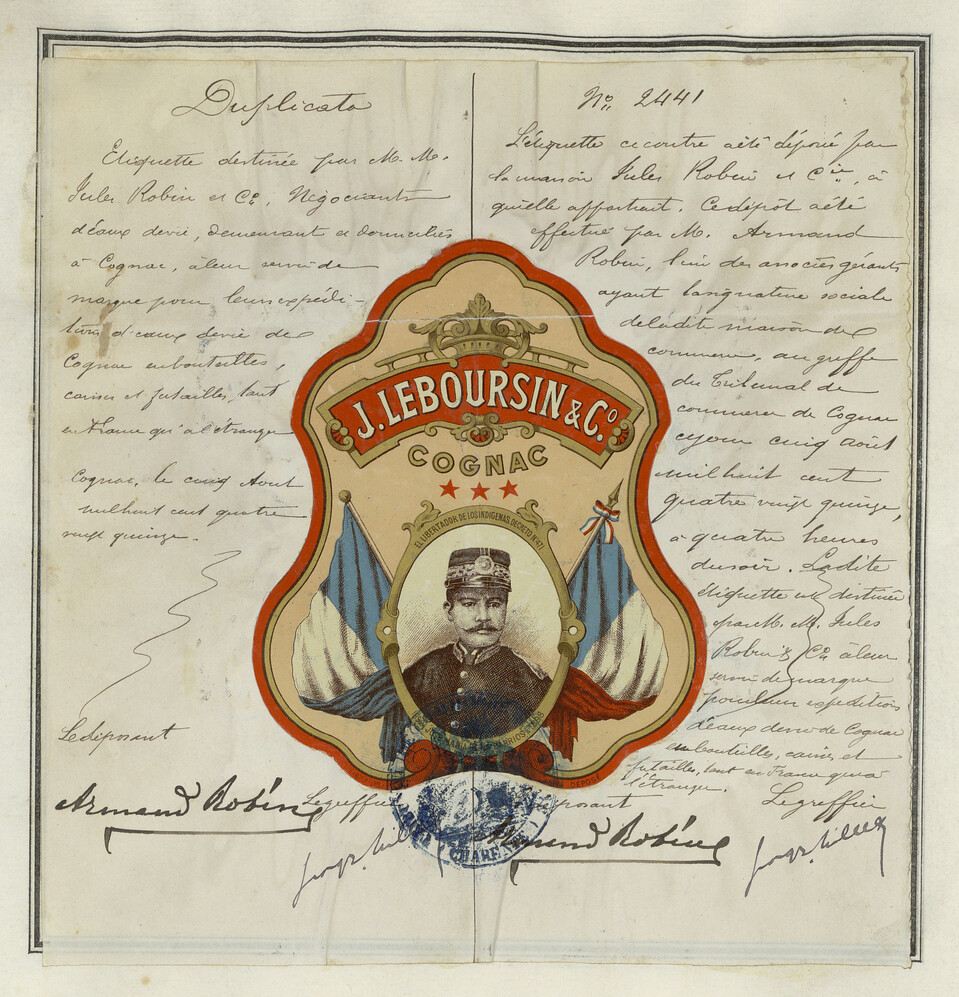 Duplicata
Etiquette destinée par M. M.
Jules Robin et Co, Négociants
d'eaux devie, demeurant et domiciliés
à Cognac, àleur servir de
marque pour leurs expédi-
tions d'eaux devie de
Cognac enbouteilles,
caisses et futailles, tant
en France qu'à l'étranger
Cognac, le cinq Aout
mil huit cent quatre
vingt quinze.
Le déposant
Armand Robin
Legreffier
No 2441
L'étiquette cicontre aété déposé par
la maison Jules Robin et Cie, à
qu'elle appartient. Cedépôt aété
effectué par M. Armand
Robin, l'un des associés gérants
ayant la signature sociale
deladite maison de
commerce, au greffe
du Tribunal de
commerce de Cognac
cejour cinq août
mil huit cent
quatre vingt quinze,
à quatre heures
dusoir. Ladite
étiquette est destinée
par M. M. Jules
Robin & Co àleur
servir demarque
pour leur expéditions
d'eaux devie de Cognac
enbouteilles, caisses et
futailles, tant en France qu'à
l'étranger.
Le déposant
Legreffier
Armand Robin
J. LEBOURSIN & Co.
COGNAC
EL LIBERTADOR DE LOS INDIGENAS. DECRETO No 471
JOSE MARIA REINA BARRIOS
DEPOSÉ
CHARENTE